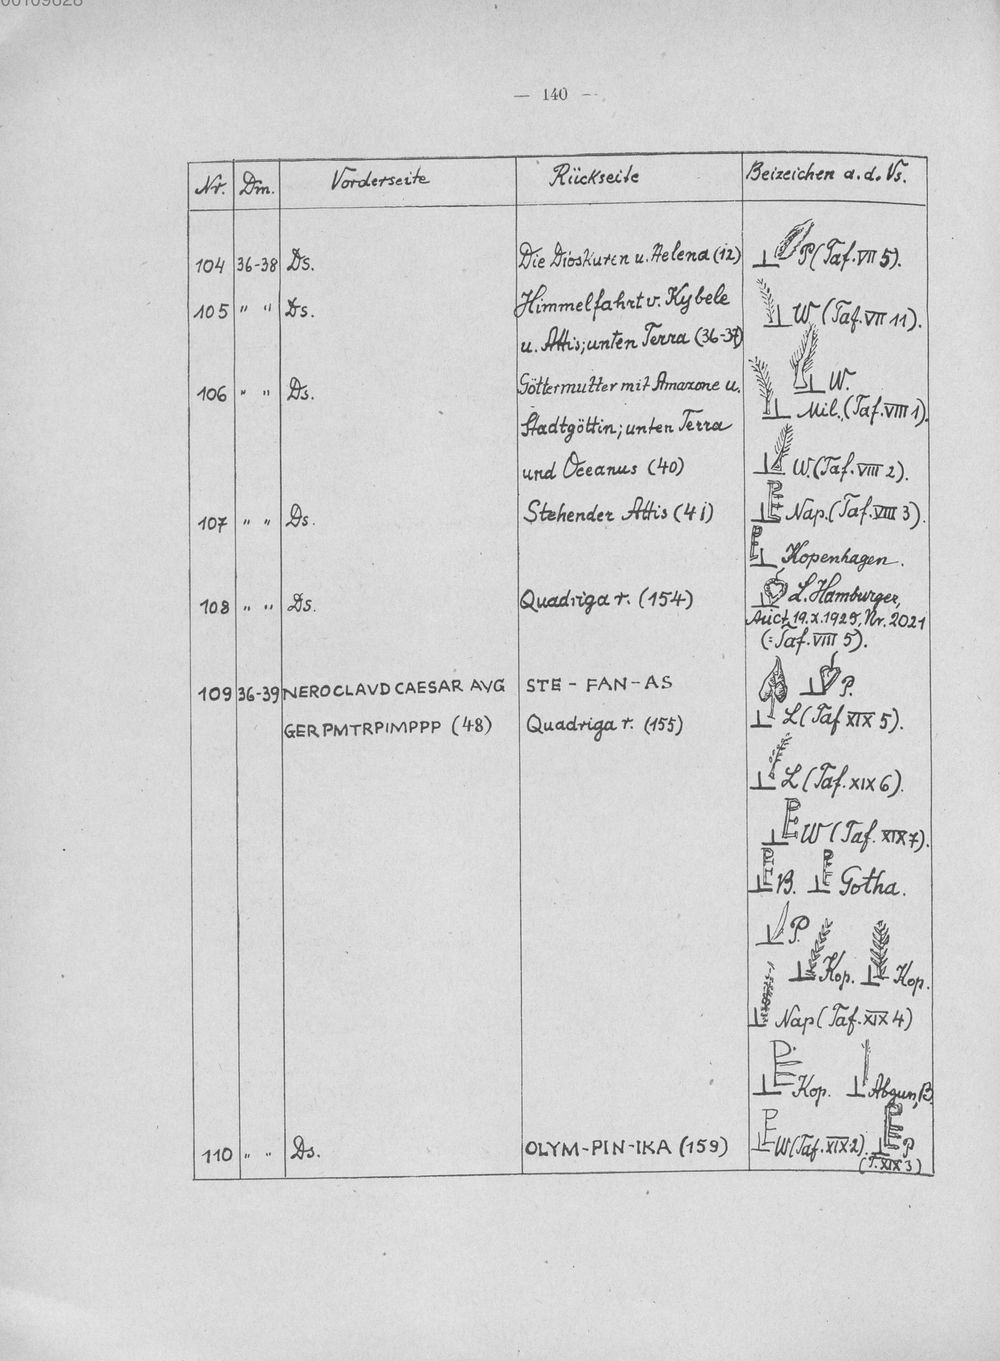 00109828
— 140 —
Nr. Dm. Vorderseite Rückseite Beizeichen a. d. Vs.
104 36-38 Ds. Die Dioskuren u. Helena (12) P (Taf. VII 5).
105 " " Ds. Himmelfahrt v. Kybele W (Taf. VII 11).
u. Attis; unten Terra (36-37)
106 " " Ds. Göttermutter mit Amazone u. W.
Stadtgöttin; unten Terra Mil. (Taf. VIII 1).
und Oceanus (40) W. (Taf. VIII 2).
107 " " Ds. Stehender Attis (41) PE Nap. (Taf. VIII 3).
PE Kopenhagen.
108 " " Ds. Quadriga r. (154) L. Hamburger,
Auct. 19.X.1925, Nr. 2021
(= Taf. VIII 5).
109 36-39 NERO CLAVD CAESAR AVG STE - FAN - AS P.
GER PMTRPIMPPP (48) Quadriga r. (155) L (Taf XIX 5).
L (Taf. XIX 6).
PE W (Taf. XIX 7).
PE B. PE Gotha.
P.
Kop. Kop.
Nap (Taf. XIX 4)
PE Kop. Abguss, B.
110 " " Ds. OLYM-PIN-IKA (159) PE W (Taf. XIX 2). PE P
(T. XIX 3)